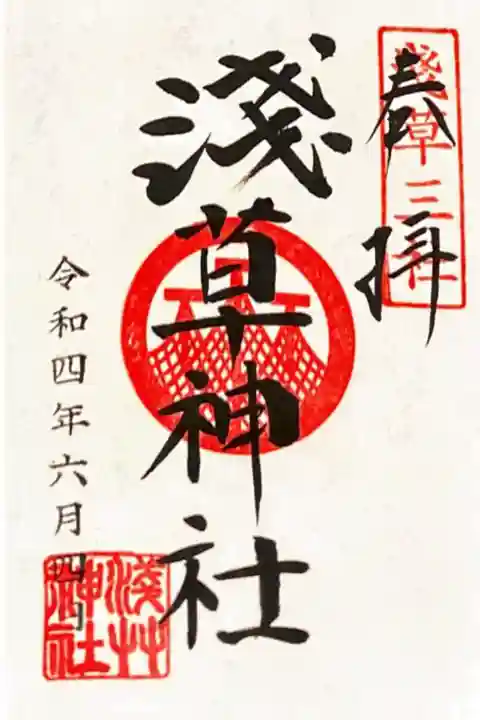 奉拝
淺草三社
淺草神社
令和四年六月四日
淺艸神社